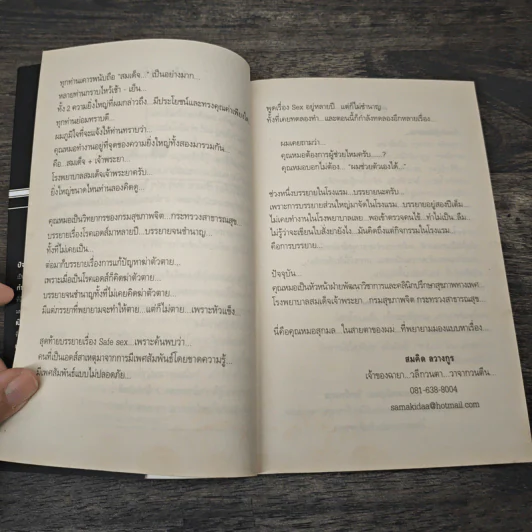 ทุกท่านเคารพนับถือ "สมเด็จ..." เป็นอย่างมาก...
หลายท่านกราบไหว้เช้า - เย็น...
ทั้ง 2 ความยิ่งใหญ่ที่ผมกล่าวถึง...มีประโยชน์และทรงคุณค่าเพียงใด
ทุกท่านย่อมทราบดี...
ผมภูมิใจที่จะแจ้งให้ท่านทราบว่า...
คุณหมอทำงานอยู่ที่จุดของความยิ่งใหญ่ทั้งสองมารวมกัน...
คือ...สมเด็จ + เจ้าพระยา...
โรงพยาบาลสมเด็จเจ้าพระยาครับ...
ยิ่งใหญ่ขนาดไหนท่านลองคิดดู...
คุณหมอเป็นวิทยากรของกรมสุขภาพจิต...กระทรวงสาธารณสุข...
บรรยายเรื่องโรคเอดส์มาหลายปี...บรรยายจนชำนาญ...
ทั้งที่ไม่เคยเป็น...
ต่อมาก็บรรยายเรื่องการแก้ปัญหาฆ่าตัวตาย...
เพราะเมื่อเป็นโรคเอดส์ก็คิดฆ่าตัวตาย...
บรรยายจนชำนาญทั้งที่ไม่เคยคิดฆ่าตัวตาย...
มีแต่ภรรยาที่พยายามจะทำให้ตาย...แต่ก็ไม่ตาย...เพราะหัวแข็ง...
สุดท้ายบรรยายเรื่อง Safe sex...เพราะค้นพบว่า...
คนที่เป็นเอดส์สาเหตุมาจากการมีเพศสัมพันธ์โดยขาดความรู้...
มีเพศสัมพันธ์แบบไม่ปลอดภัย...
พูดเรื่อง Sex อยู่หลายปี...แต่ก็ไม่ชำนาญ...
ทั้งที่เคยทดลองทำ...และตอนนี้ก็กำลังทดลองอีกหลายเรื่อง...
ผมเคยถามว่า...
คุณหมอต้องการผู้ช่วยไหมครับ......?
คุณหมอบอกไม่ต้อง... "ผมช่วยตัวเองได้..."
ช่วงหนึ่งบรรยายในโรงแรม...บรรยายนะครับ...
เพราะการบรรยายส่วนใหญ่มาจัดในโรงแรม...บรรยายอยู่สองปีเต็ม...
ไม่เคยทำงานในโรงพยาบาลเลย...พอเข้าตรวจคนไข้...ทำไม่เป็น...ลืม...
ไม่รู้ว่าจะเขียนใบสั่งยายังไง...มันคิดถึงแต่กิจกรรมในโรงแรม...
คือการบรรยาย...
ปัจจุบัน...
คุณหมอเป็นหัวหน้าฝ่ายพัฒนาวิชาการและคลินิกปรึกษาสุขภาพทางเพศ...
โรงพยาบาลสมเด็จเจ้าพระยา...กรมสุขภาพจิต กระทรวงสาธารณสุข...
นี่คือคุณหมอสุกมล...ในสายตาของผม...ที่พยายามมองแบบหาเรื่อง...
สมคิด ลวางกูร
เจ้าของฉายา...วลีกวนตา...วาจากวนตีน...
081-638-8004
samakidaa@hotmail.com